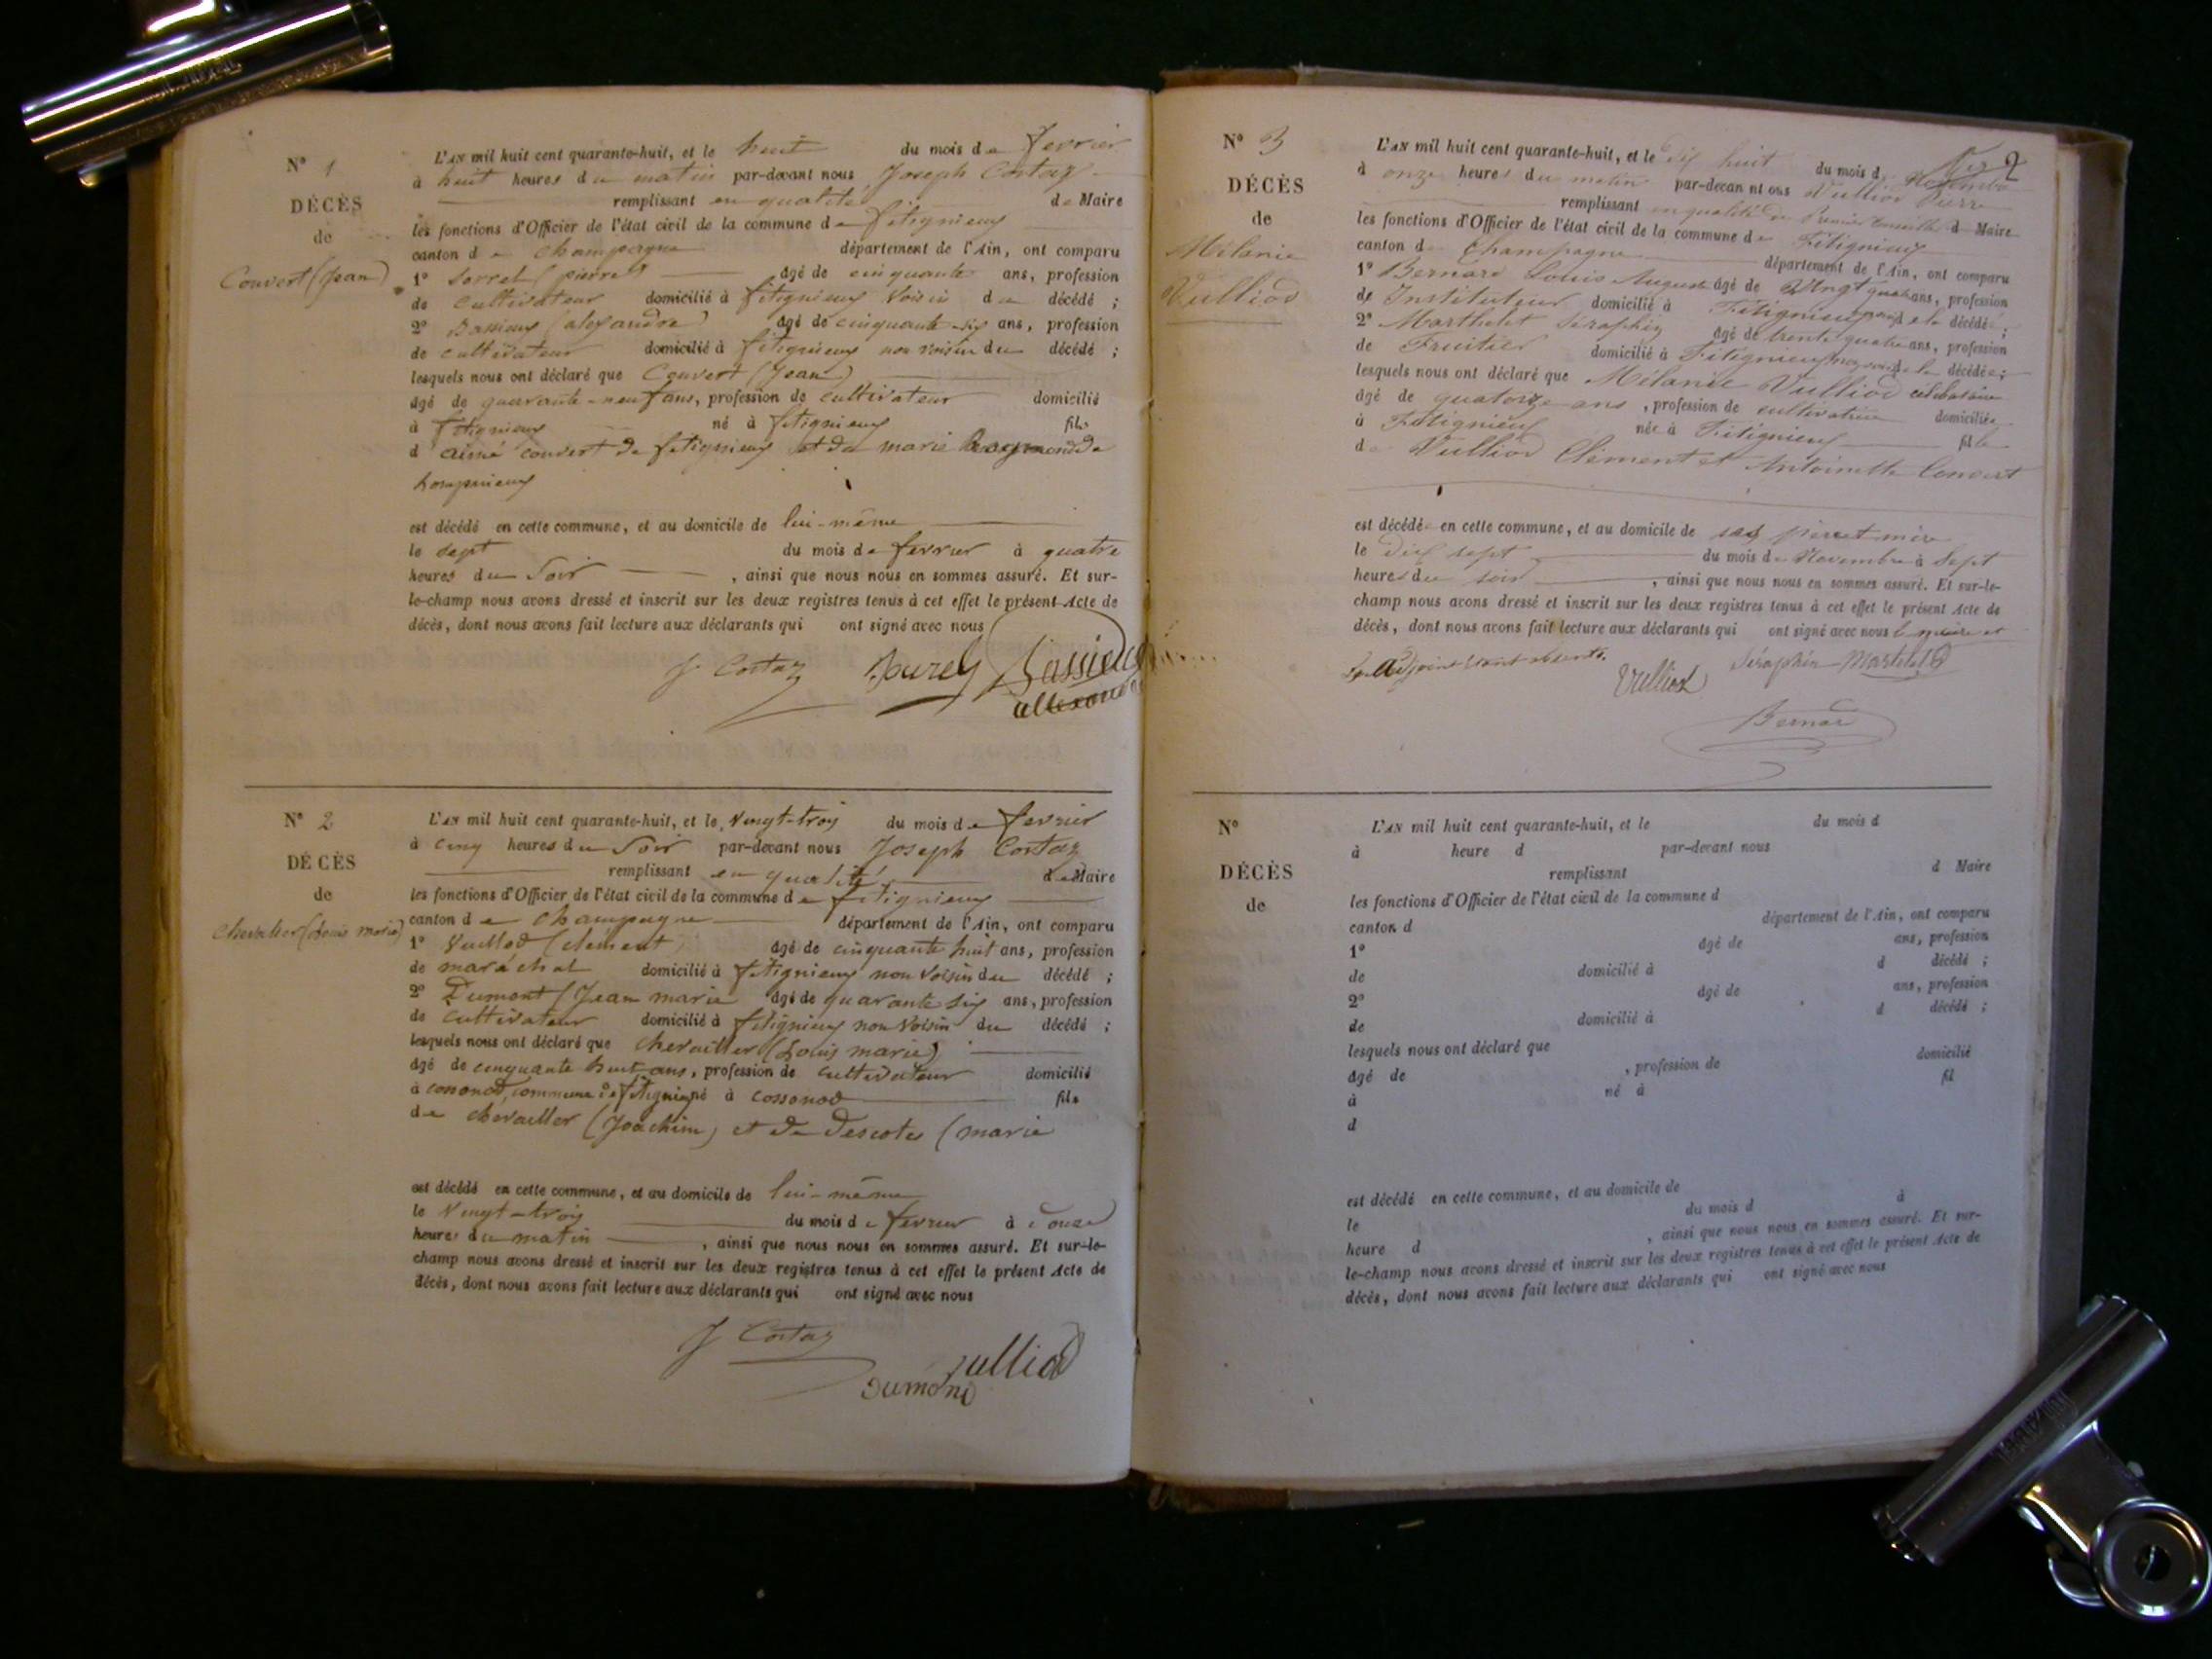 N° 1
DÉCÈS
de
Couvert (Jean)
L'AN mil huit cent quarante-huit, et le huit du mois de fevrier
à huit heures du matin par-devant nous Joseph Costaz
remplissant en qualité de Maire
les fonctions d'Officier de l'état civil de la commune de fitignieux
canton de Champagne département de l'Ain, ont comparu
1° pierre âgé de cinquante ans, profession
de cultivateur domicilié à fitignieux voisin du décédé ;
2° Bassieux (alexandre) âgé de cinquante-six ans, profession
de cultivateur domicilié à fitignieux non voisin du décédé ;
lesquels nous ont déclaré que Couvert (Jean)
âgé de quarante-neuf ans, profession de cultivateur domicilié
à fitignieux né à fitignieux fils
d'aimé couvert de fitignieux et de marie de
est décédé en cette commune, et au domicile de lui-même
le sept du mois de fevrier à quatre
heures du Soir , ainsi que nous nous en sommes assuré. Et sur-
le-champ nous avons dressé et inscrit sur les deux registres tenus à cet effet le présent Acte de
décès, dont nous avons fait lecture aux déclarants qui ont signé avec nous
J. Costaz Bassieux
N° 2
DÉCÈS
de
chevailler (Louis marie)
L'AN mil huit cent quarante-huit, et le vingt-trois du mois de fevrier
à cinq heures du Soir par-devant nous Joseph Costaz
remplissant en qualité de Maire
les fonctions d'Officier de l'état civil de la commune de fitignieux
canton de champagne département de l'Ain, ont comparu
1° Vulliod (clement) âgé de cinquante huit ans, profession
de maréchal domicilié à fitignieux non voisin du décédé ;
2° Dumont (Jean marie âgé de quarante six ans, profession
de cultivateur domicilié à fitignieux non voisin du décédé ;
lesquels nous ont déclaré que chevailler (Louis marie)
âgé de cinquante huit ans, profession de cultivateur domicilié
à cossonod, commune de né à cossonod fils
de chevailler (Joachim) et de Descotes (marie
est décédé en cette commune, et au domicile de lui-même
le vingt-trois du mois de fevrier à douze
heures du matin , ainsi que nous nous en sommes assuré. Et sur-le-
champ nous avons dressé et inscrit sur les deux registres tenus à cet effet le présent Acte de
décès, dont nous avons fait lecture aux déclarants qui ont signé avec nous
J Costaz
vulliod
Dumond
2
N° 3
DÉCÈS
de
Mélanie
Vulliod
L'AN mil huit cent quarante-huit, et le dix huit du mois de Novembre
à onze heures du matin par-devant nous Vulliod Pierre
remplissant en qualité de Premier Conseiller de Maire
les fonctions d'Officier de l'état civil de la commune de Fitignieux
canton de Champagne département de l'Ain, ont comparu
1° Bernard Louis Auguste âgé de Vingt quatre ans, profession
de Instituteur domicilié à Fitignieux de la décédée ;
2° Marthelet Séraphin âgé de trente quatre ans, profession
de Fruitier domicilié à Fitignieux de la décédée ;
lesquels nous ont déclaré que Mélanie Vulliod célibataire
âgé de quatorze ans , profession de cultivatrice domiciliée
à Fitignieux née à Fitignieux fille
de Vulliod Clément et Antoinette Couvert
est décédée en cette commune, et au domicile de ses père et mère
le Dix sept du mois de Novembre à Sept
heures du soir , ainsi que nous nous en sommes assuré. Et sur-le-
champ nous avons dressé et inscrit sur les deux registres tenus à cet effet le présent Acte de
décès, dont nous avons fait lecture aux déclarants qui ont signé avec nous le maire et
l'adjoint étant absents. Séraphin Martelet
Vulliod
Bernard
N°
DÉCÈS
de
L'AN mil huit cent quarante-huit, et le du mois d
à heure d par-devant nous
remplissant d Maire
les fonctions d'Officier de l'état civil de la commune d
canton d département de l'Ain, ont comparu
1° âgé de ans, profession
de domicilié à d décédé ;
2° âgé de ans, profession
de domicilié à d décédé ;
lesquels nous ont déclaré que
âgé de , profession de domicilié
à né à fil
d
est décédé en cette commune, et au domicile de
le du mois d à
heure d , ainsi que nous nous en sommes assuré. Et sur-
le-champ nous avons dressé et inscrit sur les deux registres tenus à cet effet le présent Acte de
décès, dont nous avons fait lecture aux déclarants qui ont signé avec nous